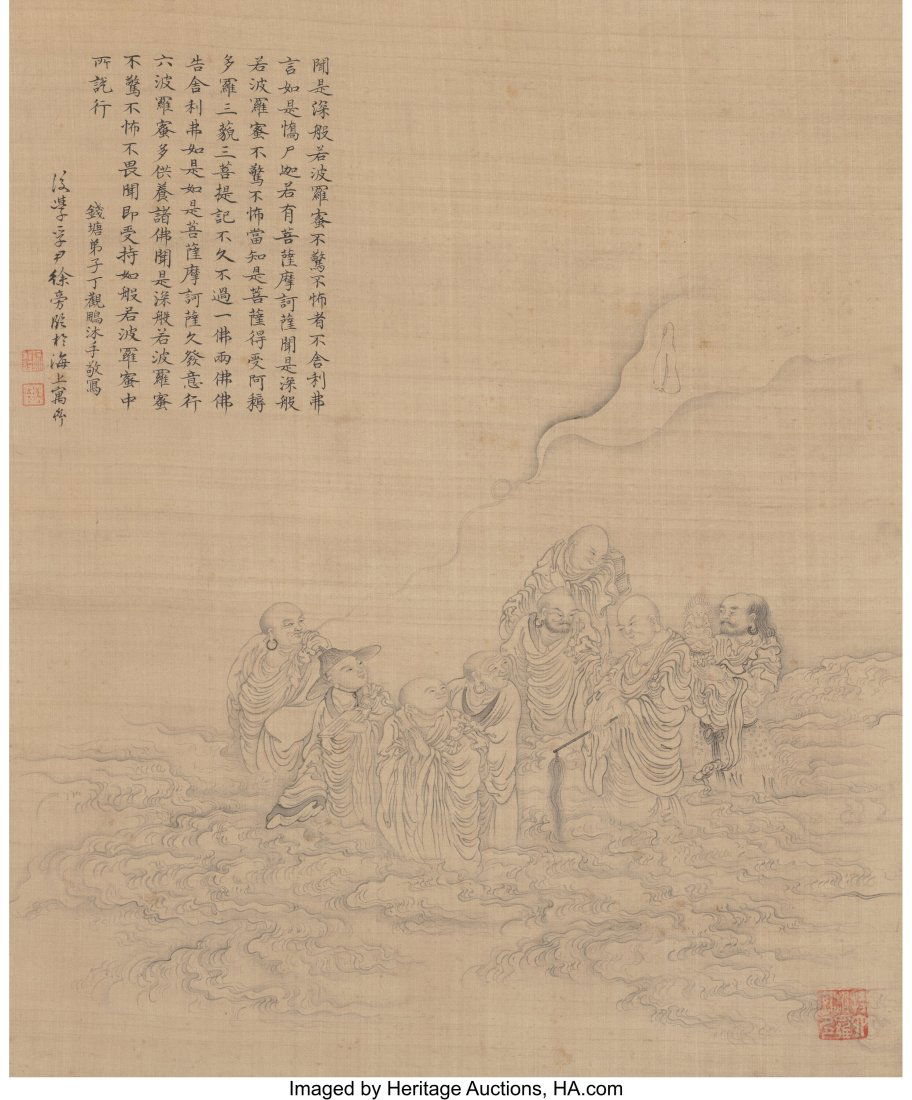 聞是深般若波羅蜜不驚不怖者不舍利弗
言如是憍尸迦若有菩薩摩訶薩聞是深般
若波羅蜜不驚不怖當知是菩薩得受阿耨
多羅三藐三菩提記不久不過一佛兩佛佛
告舍利弗如是如是菩薩摩訶薩久發意行
六波羅蜜多供養諸佛聞是深般若波羅蜜
不驚不怖不畏聞即受持如般若波羅蜜中
所説行
錢塘弟子丁觀鵬沐手敬寫
後學
徐旁
於海上寓
Imaged by Heritage Auctions, HA.com